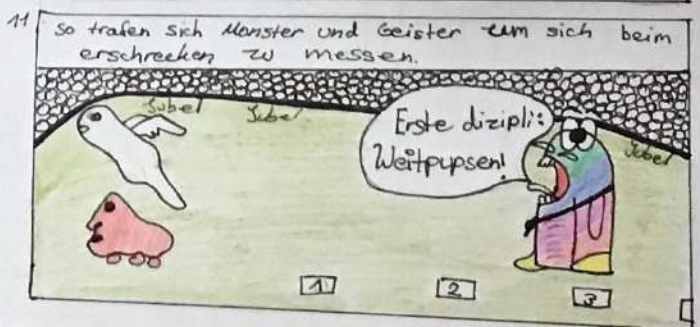 11
So trafen sich Monster und Geister um sich beim
erschrecken zu messen.
Jubel
Jubel
Erste dizipli:
Weitpupsen!
Jubel
1
2
3